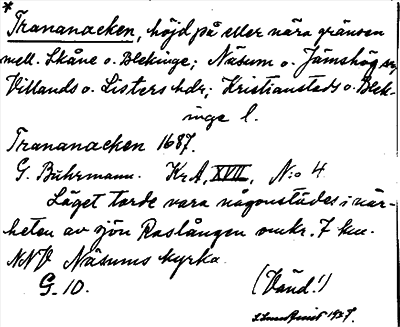 *
Trananacken, höjd på eller nära gränsen
mell. Skåne o. Blekinge; Näsum o. Jämshög snr,
Villands o. Listers hdr; Kristianstads o. Blek-
inge l.
Trananacken 1687.
G. Buhrmann. KrA, XVII, N:o 4
Läget torde vara någonstädes i när-
heten av sjön Raslången omkr. 7 km.
NNV Näsums kyrka.
G. 10. (Vänd!)
1927.